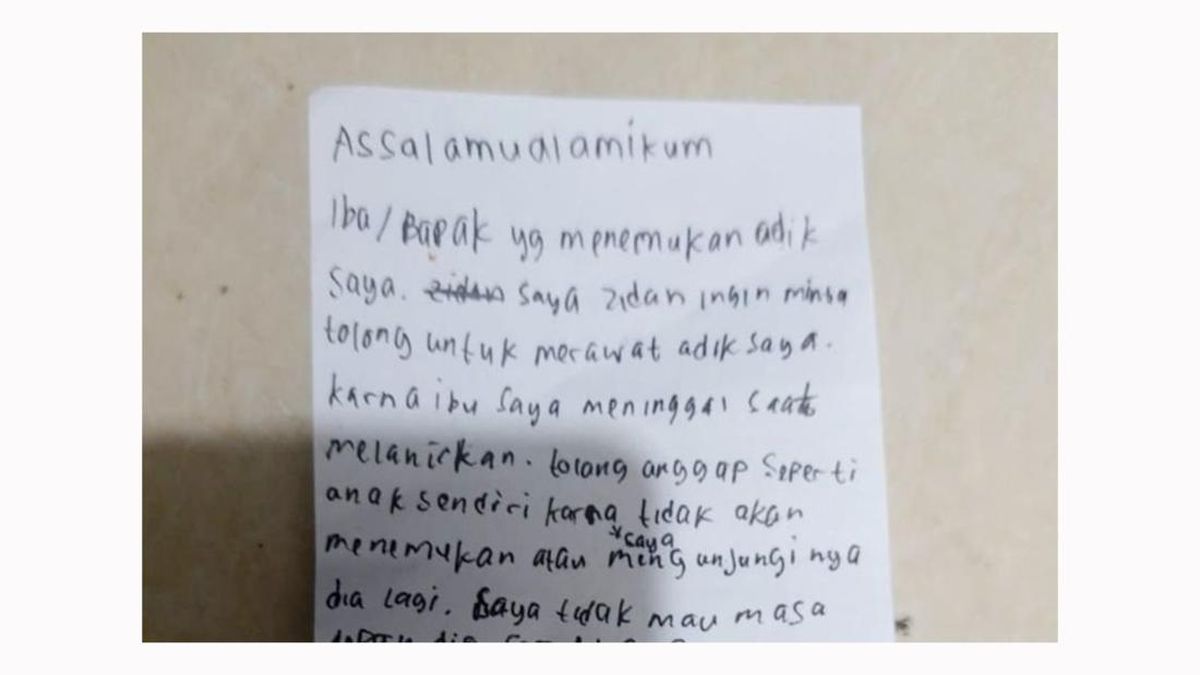 Assalamualamikum
Iba/Bapak yg menemukan adik
saya. zidan saya zidan ingin minta
tolong untuk merawat adik saya.
karna ibu saya meninggal saat
melanirkan. tolong anggap seperti
anak sendiri karna tidak akan
*saya
menemukan atau mengunjungi nya
dia lagi. saya tidak mau masa